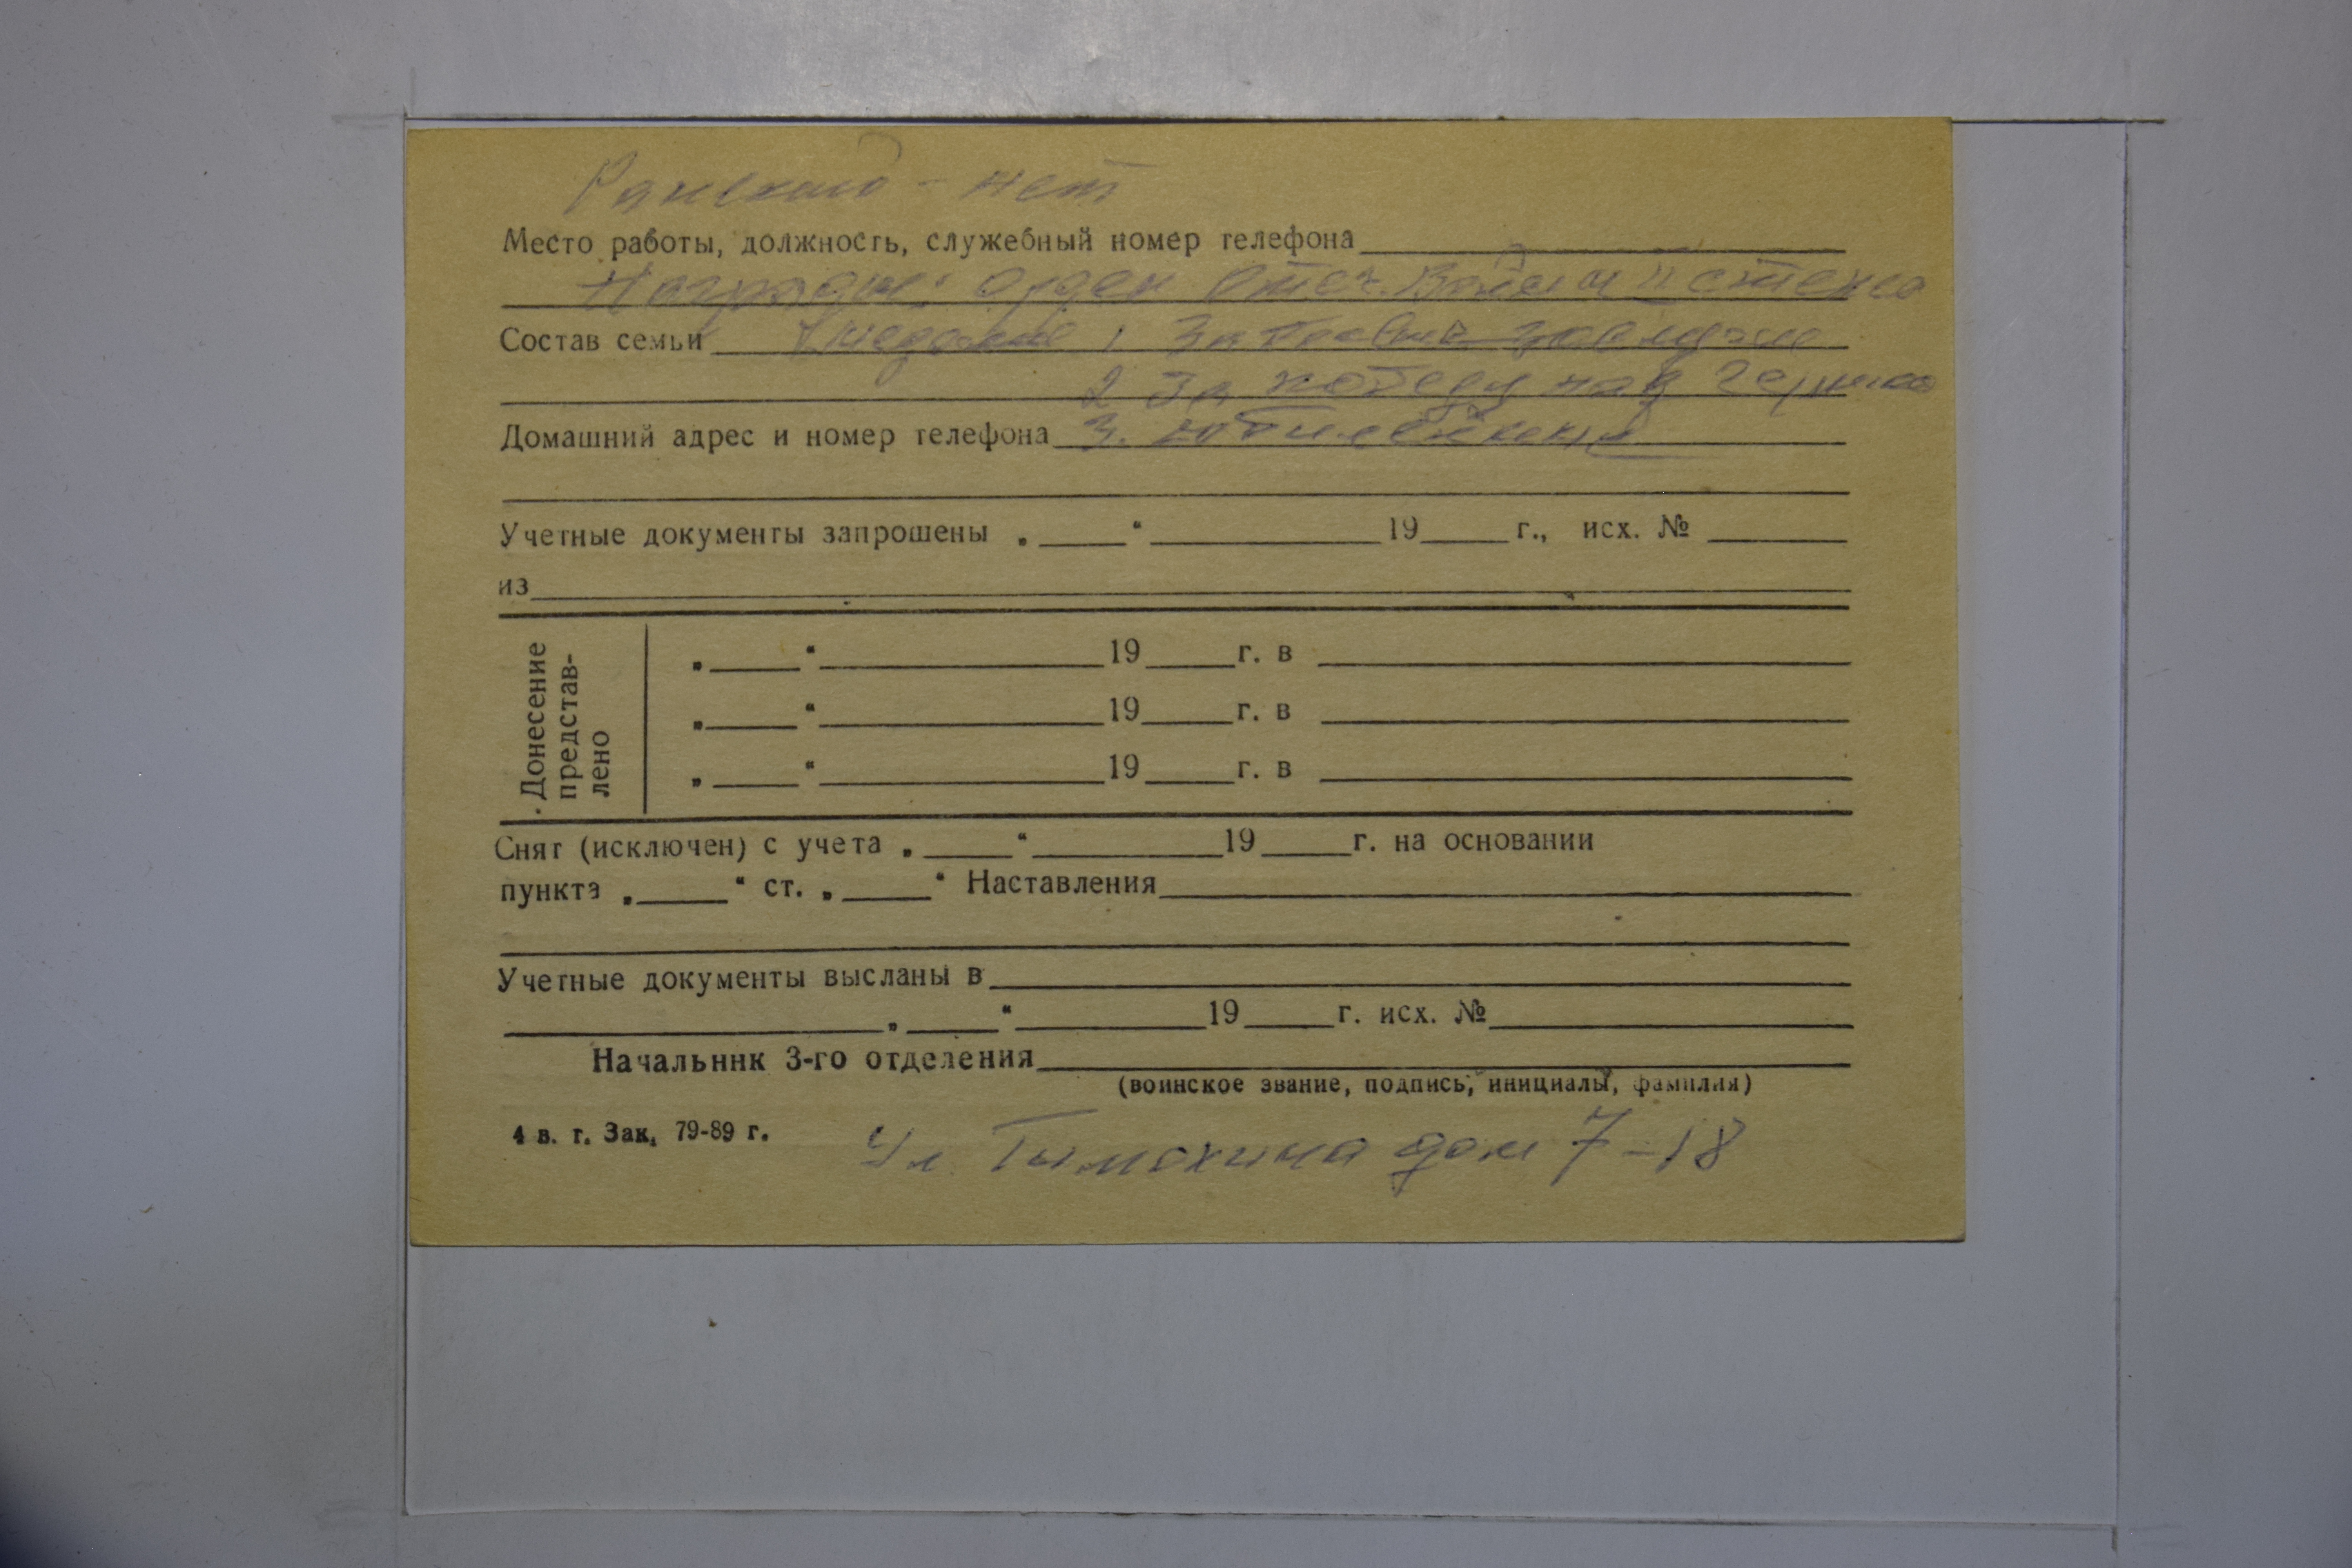 Ранений - нет
Место работы, должность, служебный номер телефона
Награды: Орден Отеч. Войны II степени
Состав семьи медали 1 За боевые заслуги
2 За победу над Герман
Домашний адрес и номер телефона 3. юбилейных
Учетные документы запрошены „ “ 19 г., исх. №
из
Донесение представ-
лено
„ “ 19 г. в
„ “ 19 г. в
„ “ 19 г. в
Снят (исключен) с учета „ “ 19 г. на основании
пункта „ “ ст. „ “ Наставления
Учетные документы высланы в
„ “ 19 г. исх. №
Начальник 3-го отделения
(воинское звание, подпись, инициалы, фамилия)
4 в. г. Зак. 79-89 г.
Ул. Тымохина дом 7-18